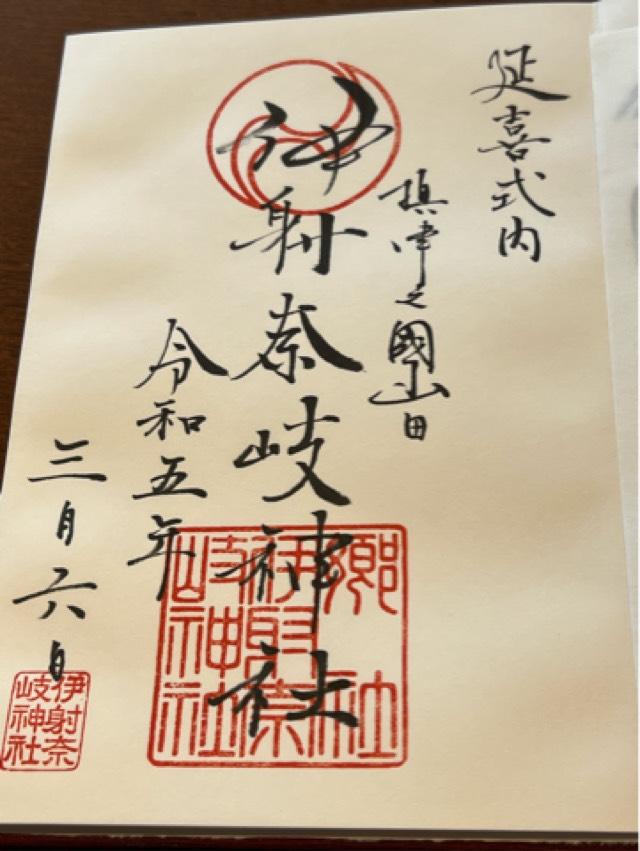 延喜式内
摂津之國山田
伊射奈岐神社
令和五年
三月六日
郷社
伊射奈
岐神社
伊射奈
岐神社